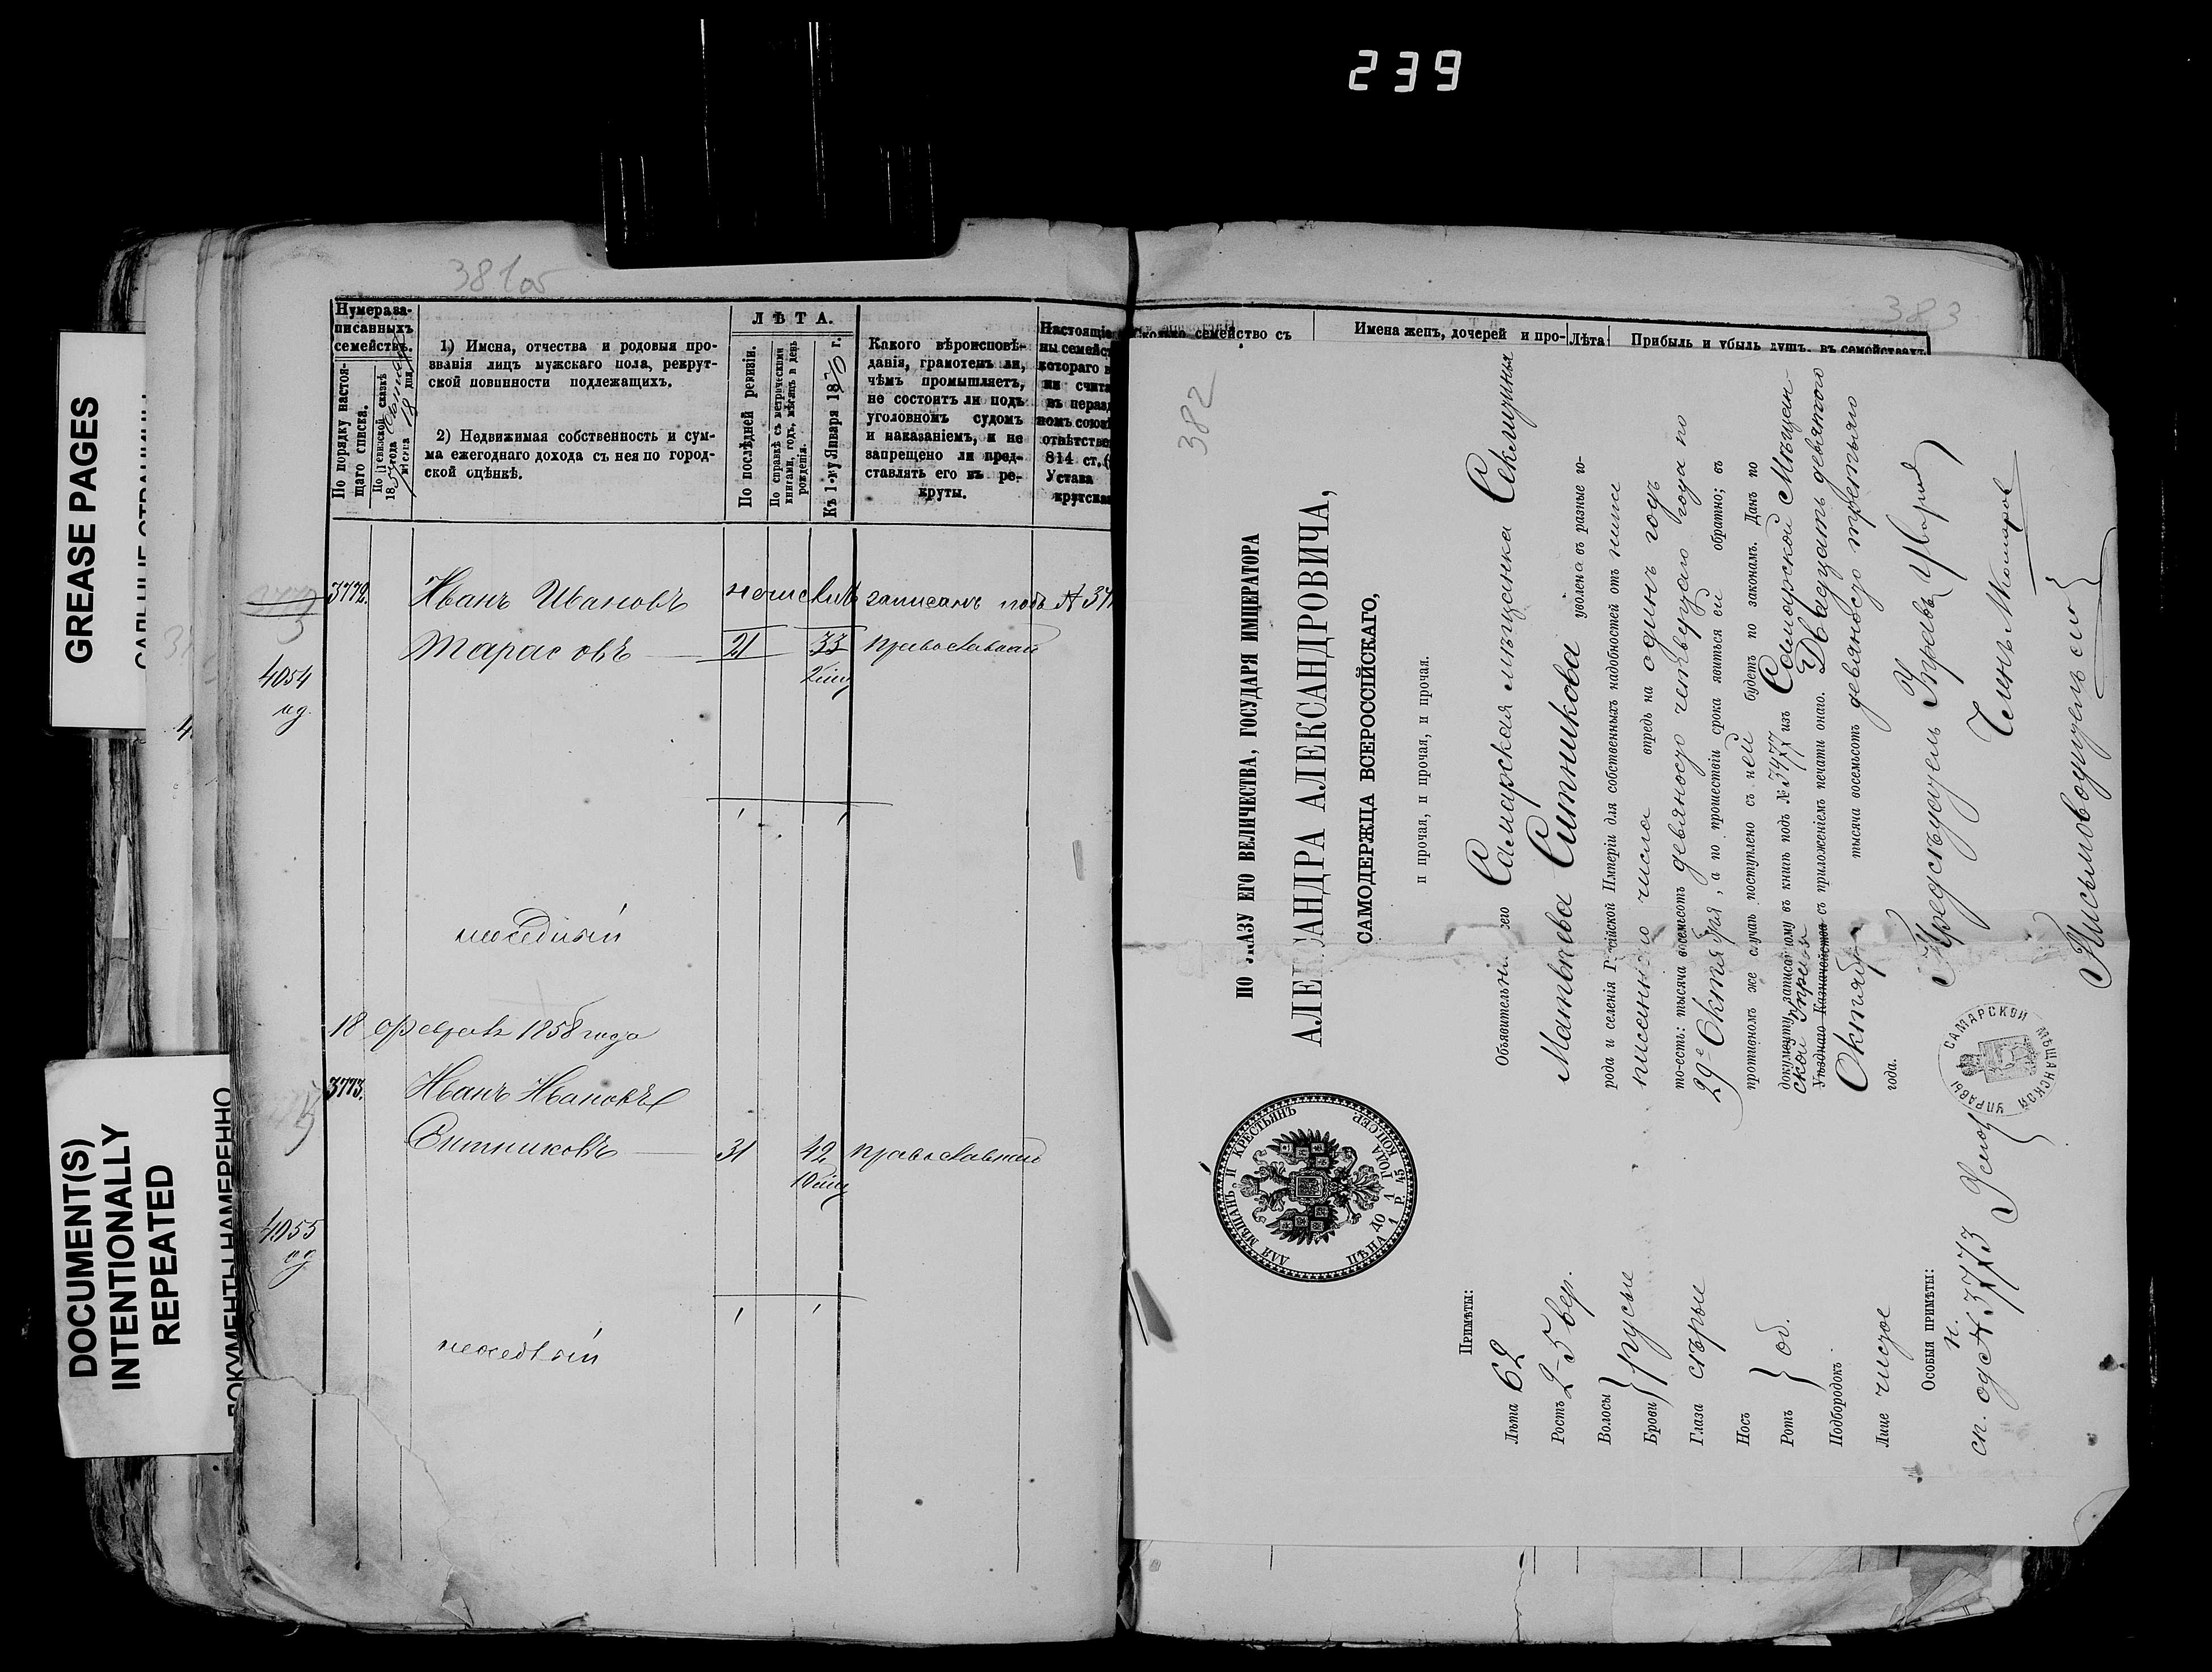 239
GREASE PAGES
DOCUMENT(S)
INTENTIONALLY
REPEATED
ДОКУМЕНТЫ НАМЕРЕННО
381об
Нумера за-
писанныхъ
семействъ.
По порядку настоя-
щаго списка.
По ревизской сказкѣ
1) Имена, отчества и родовыя про-
званія лицъ мужскаго пола, рекрут-
ской повинности подлежащихъ.
2) Недвижимая собственность и сум-
ма ежегоднаго дохода съ нея по город-
ской оцѣнкѣ.
ЛѢТА.
По послѣдней ревизіи.
По справкѣ съ метрическими
книгами, годъ, мѣсяцъ и день
рожденія.
Къ 1-му Января 1870 г.
Какого вѣроисповѣ-
данія, грамотенъ ли,
чѣмъ промышляетъ,
не состоитъ ли подъ
уголовномъ судомъ
и наказаніемъ, и не
запрещено ли пред-
ставлять его въ ре-
круты.
Настоящіе
ны семейс
котораго
ми счита
въ перазд
номъ союз
отвѣтстве
814 ст. (
Устава
крутска
3772. Иванъ Ивановъ записанъ подъ №
Тарасовъ 21 33 православный
4054
18 Февраль 1858 года
3773. Иванъ Ивановъ
Ситниковъ 31 42 православный
4055
383
семейство съ
Имена женъ, дочерей и про-
Лѣта
Прибыль и убыль душъ, въ семействахъ
382
ПО УКАЗУ ЕГО ВЕЛИЧЕСТВА, ГОСУДАРЯ ИМПЕРАТОРА
АЛЕКСАНДРА АЛЕКСАНДРОВИЧА,
САМОДЕРЖЦА ВСЕРОССІЙСКАГО,
и прочая, и прочая, и прочая.
Объявительни сего Самарская мѣщанка Секлитинья
Матвѣева Ситникова уволена въ разные го-
рода и селенія Россійской Имперіи для собственныхъ надобностей отъ ниже
писаннаго числа впредь на одинъ годъ
то-есть: тысяча восемьсотъ девяносто четвертаго года по
29е Октября, а по прошествіи срока явиться ей обратно; въ
противномъ же случаѣ поступлено съ ней будетъ по законамъ. Данъ по
документу, записанному въ книгѣ подъ № 3477 изъ Самарской Мѣщан-
ской Управы Двадцать девятого
Уѣзднаго Казначейства съ приложеніемъ печати онаго.
Октября тысяча восемьсотъ девяносто третьяго
года.
Предсѣдатель Управы
Членъ
Письмоводитель
САМАРСКОЙ МѢЩАНСКОЙ УПРАВЫ
ДЛЯ МѢЩАНЪ И КРЕСТЬЯНЪ
ЦѢНА ДО 1 ГОДА
1 Р. 45 КОПѢЕКЪ
Примѣты:
Лѣта 62
Ростъ 2-5 вер.
Волосы
Брови } русые
Глаза сѣрые
Носъ
Ротъ } об.
Подбородокъ
Лице чистое
Особыя примѣты:
н.
сп. од № 3773